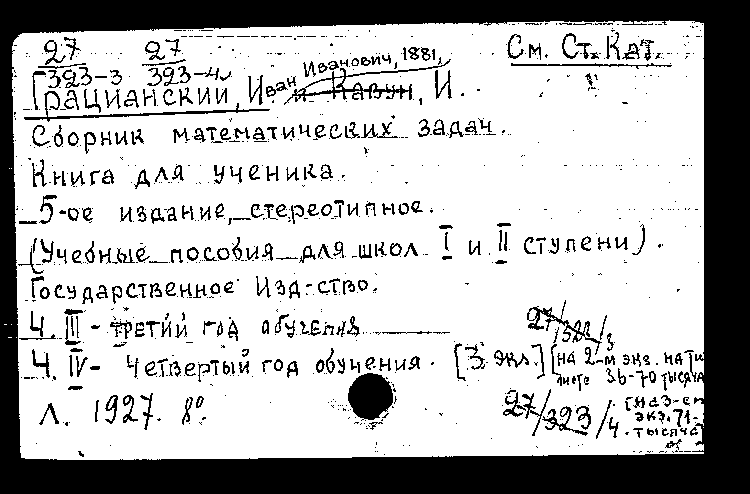 27/323-3 27/323-4 См. Ст. Кат.
Грацианский, Иван Иванович, 1881, и Кавун, И.
Сборник математических задач.
Книга для ученика.
5-ое издание, стереотипное.
(Учебные пособия для школ I и II ступени).
Государственное Изд-ство.
Ч. III - третий год обучения 27/322/3
Ч. IV - Четвертый год обучения. [3 экз.] [на 2-м экз. на ти
листе 36-70 тысяча
Л. 1927. 8°. 27/323/4. [на 3-ем
экз. 71-
тысяча